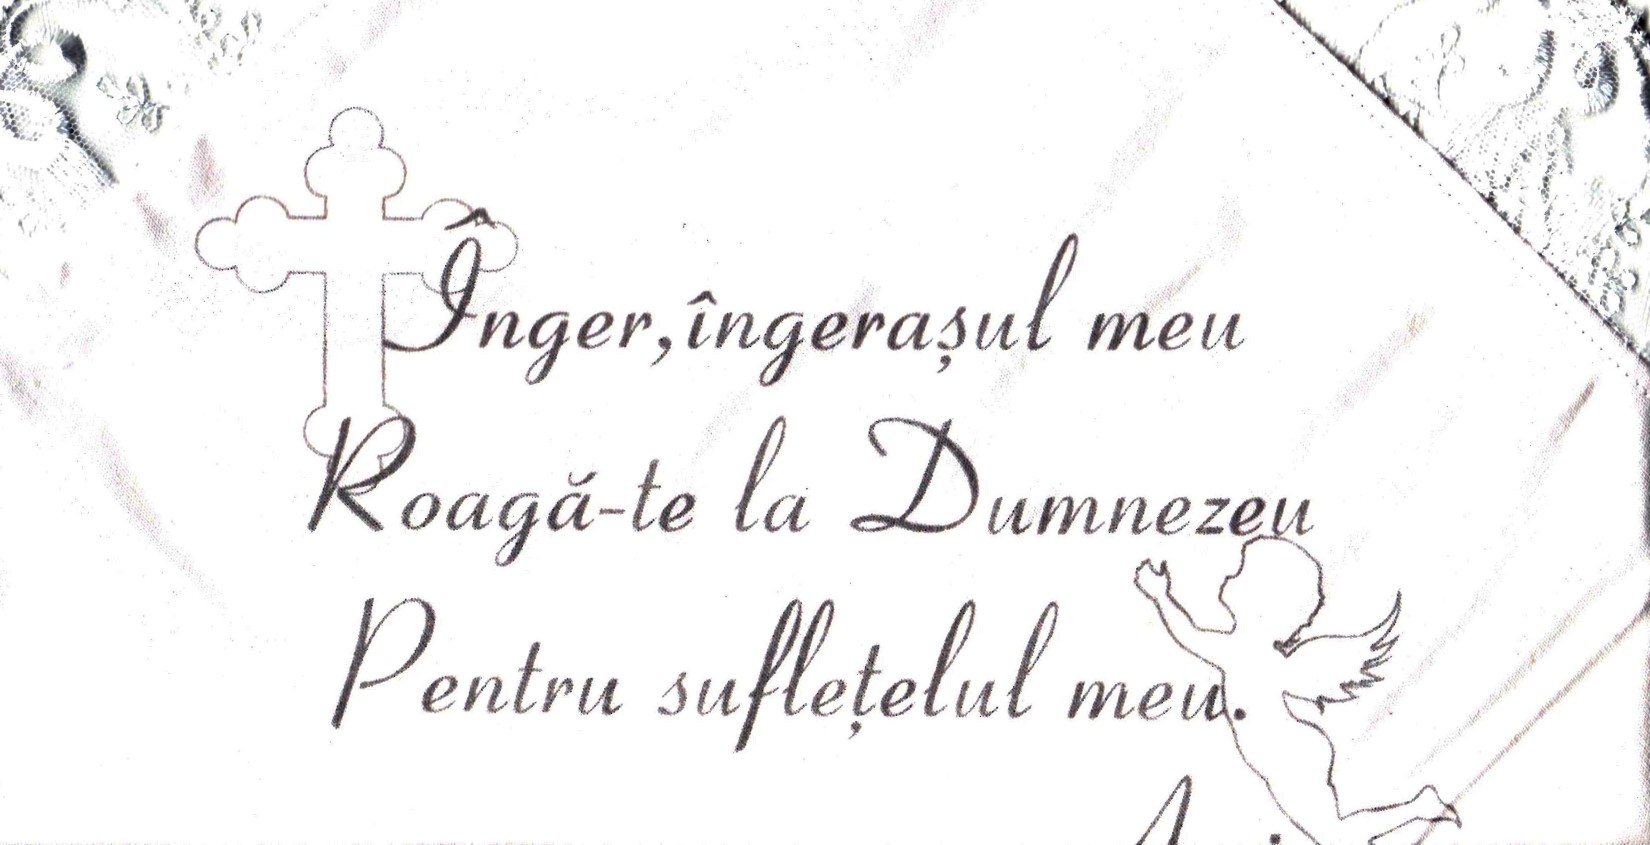 Înger,îngerașul meu
Roagă-te la Dumnezeu
Pentru suflețelul meu.